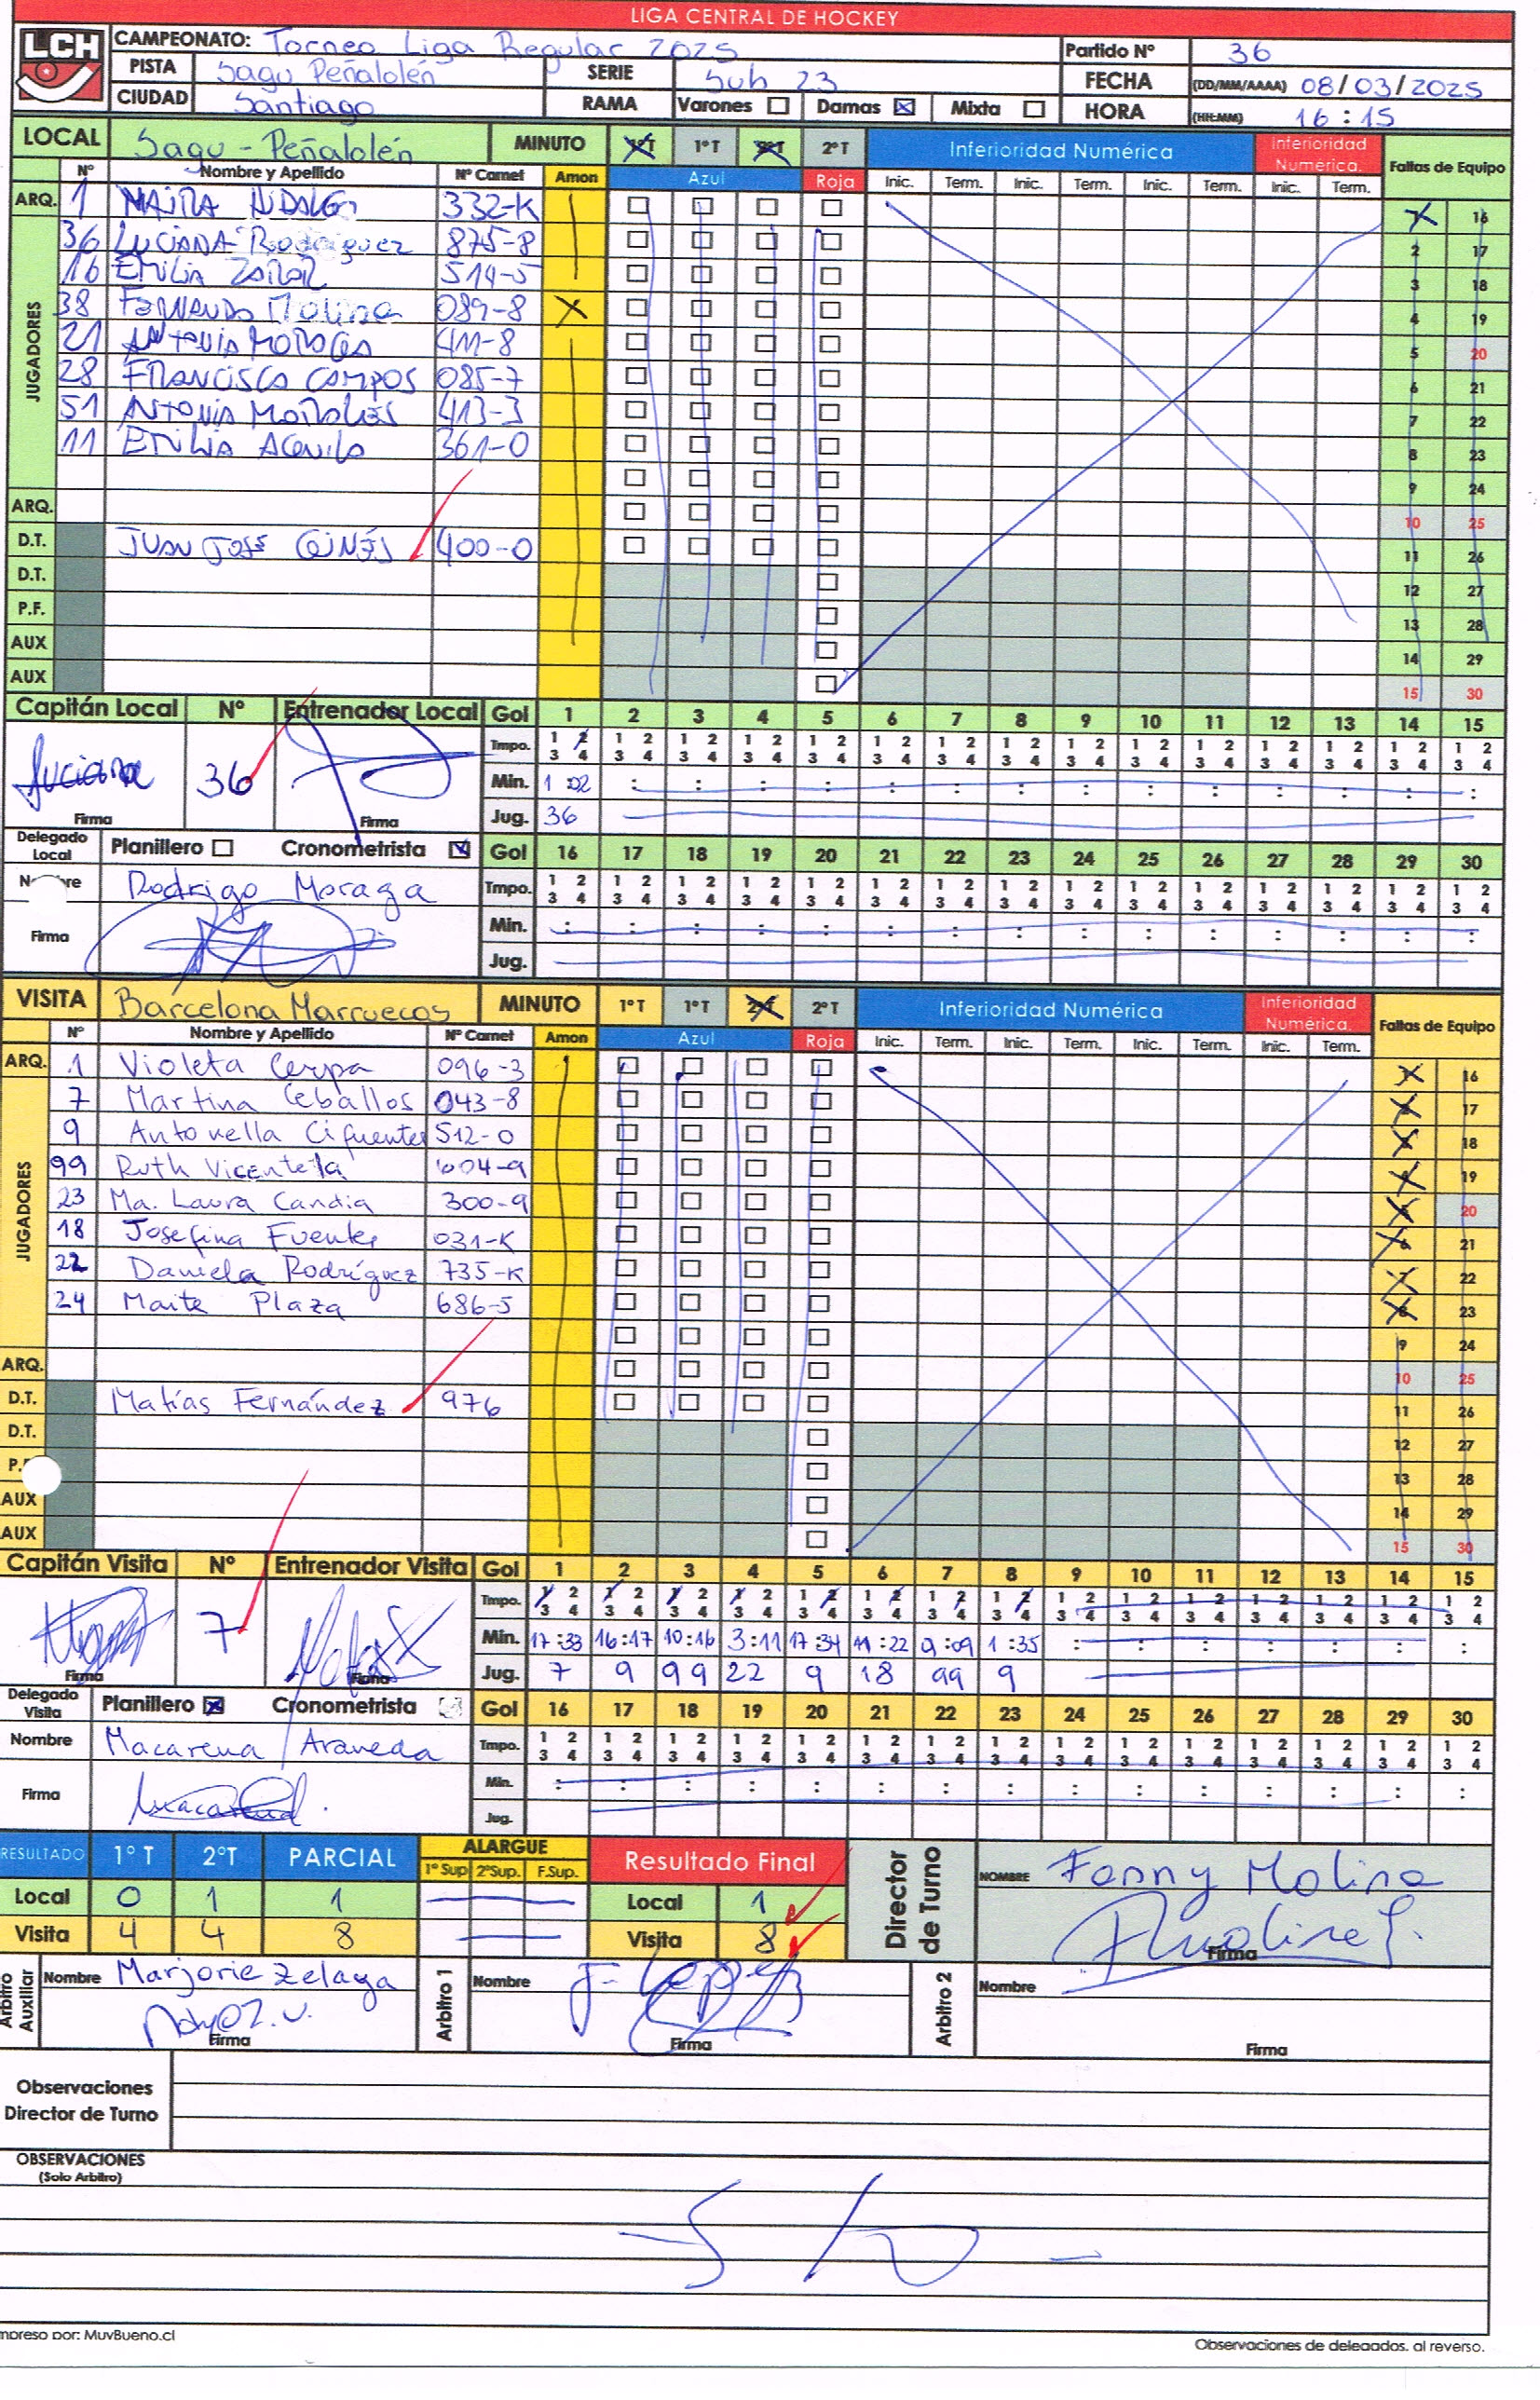 LIGA CENTRAL DE HOCKEY
LCH
CAMPEONATO: Torneo Liga Regular 2025
Partido Nº 36
PISTA Sagu Peñalolén SERIE Sub 23
FECHA (DD/MM/AAAA) 08/03/2025
CIUDAD Santiago RAMA Varones Damas Mixta
HORA (HH:MM) 16:15
LOCAL Sagu - Peñalolén MINUTO 1ºT 2ºT Inferioridad Numérica Inferioridad Numérica. Faltas de Equipo
Nº Nombre y Apellido Nº Carnet Amon Azul Roja Inic. Term. Inic. Term. Inic. Term. Inic. Term.
ARQ. 1 MAITA HIDALGO 332-K
JUGADORES
36 LUCIANA Rodriguez 875-8
16 EMILIA 514-5
38 FERNANDA Molina 089-8
21 ANTONIA 411-8
28 FRANCISCA CAMPOS 085-7
51 ANTONIA MORALES 413-3
11 EMILIA 361-0
ARQ.
D.T. JUAN JOSÉ 400-0
D.T.
P.F.
AUX
AUX
1 16
2 17
3 18
4 19
5 20
6 21
7 22
8 23
9 24
10 25
11 26
12 27
13 28
14 29
15 30
Capitán Local Nº Entrenador Local Gol 1 2 3 4 5 6 7 8 9 10 11 12 13 14 15
Luciana 36
Tmpo. 1 2 3 4
Min. 1:02
Firma Firma Jug. 36
Delegado Local Planillero Cronometrista Gol 16 17 18 19 20 21 22 23 24 25 26 27 28 29 30
Nombre Rodrigo Moraga Tmpo. 1 2 3 4
Firma Min.
Jug.
VISITA Barcelona Marruecos MINUTO 1ºT 1ºT 2ºT 2ºT Inferioridad Numérica Inferioridad Numérica. Faltas de Equipo
Nº Nombre y Apellido Nº Carnet Amon Azul Roja Inic. Term. Inic. Term. Inic. Term. Inic. Term.
ARQ. 1 Violeta Cerpa 096-3
JUGADORES
7 Martina Ceballos 043-8
9 Antonella Cifuentes 512-0
99 Ruth Vicentela 604-9
23 Ma. Laura Candia 300-9
18 Josefina Fuentes 031-K
22 Daniela Rodríguez 735-K
24 Maite Plaza 686-5
ARQ.
D.T. Matías Fernández 976
D.T.
P.F.
AUX
AUX
1 16
2 17
3 18
4 19
5 20
6 21
7 22
8 23
9 24
10 25
11 26
12 27
13 28
14 29
15 30
Capitán Visita Nº Entrenador Visita Gol 1 2 3 4 5 6 7 8 9 10 11 12 13 14 15
7
Tmpo. 1 2 3 4
Min. 17:33 16:17 10:16 3:11 17:34 11:22 9:09 1:35
Firma Firma Jug. 7 9 99 22 9 18 99 9
Delegado Visita Planillero Cronometrista Gol 16 17 18 19 20 21 22 23 24 25 26 27 28 29 30
Nombre Macarena Araneda Tmpo. 1 2 3 4
Firma Min.
Jug.
RESULTADO 1ºT 2ºT PARCIAL ALARGUE 1ºSup 2ºSup. F.Sup. Resultado Final
Local 0 1 1 Local 1
Visita 4 4 8 Visita 8
Director de Turno NOMBRE Fanny Molina
Firma
Arbitro Auxiliar Nombre Marjorie Zelaya
Firma
Arbitro 1 Nombre
Firma
Arbitro 2 Nombre
Firma
Observaciones
Director de Turno
OBSERVACIONES
(Solo Arbitro)
Impreso por: MuvBueno.cl
Observaciones de delegados. al reverso.